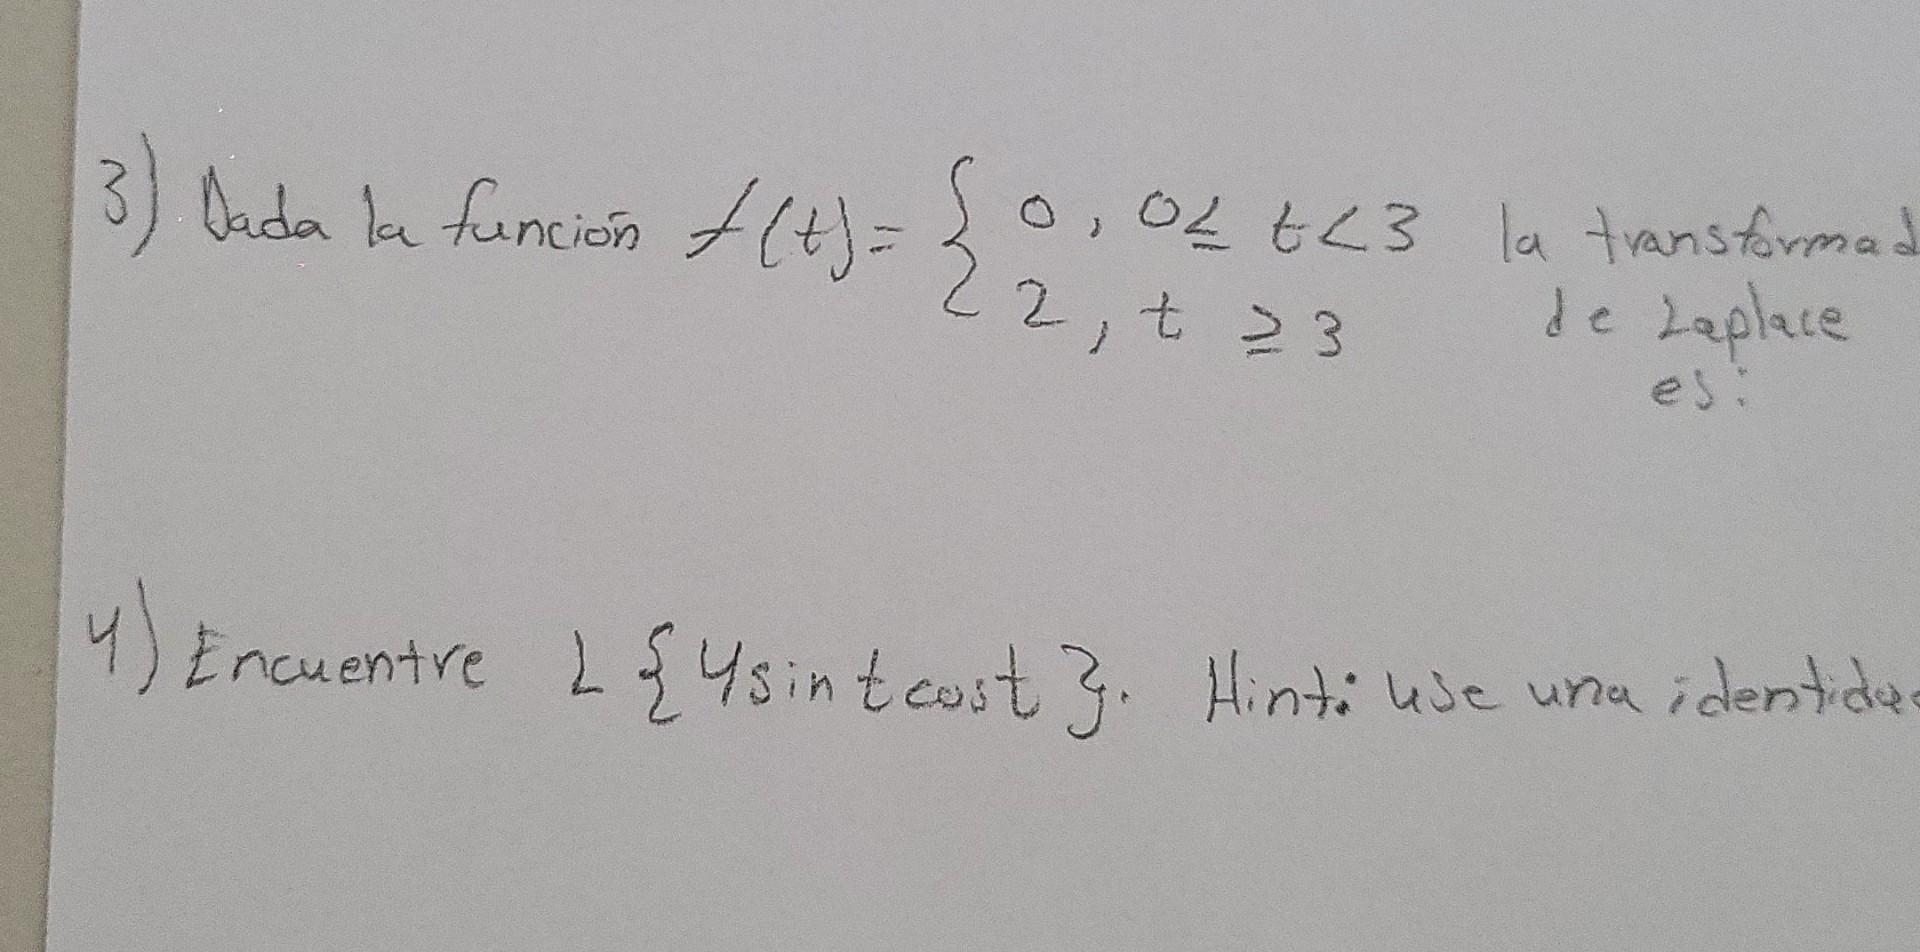 3) Dada la función f(t) = { 0, 0 ≤ t < 3 la transformad
2, t ≥ 3 de Laplace
es:
4) Encuentre L{4sintcost}. Hint: use una identidad